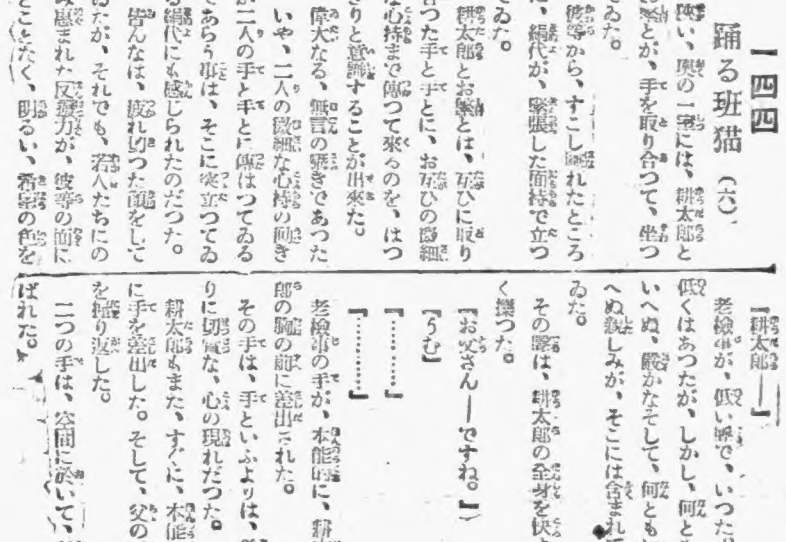 一四四
踊る斑猫（六）
狹い、奥の一室には、耕太郎と
お繁とが、手を取り合つて、坐つ
てゐた。
彼等から、すこし離れたところ
に、絹代が、緊張した面持で立つ
てゐた。
耕太郎とお繁とは、互ひに取り
合つた手と手とに、お互ひの微細
な心持まで傳つて來るのを、はつ
きりと意識することが出來た。
偉大なる、無言の囁きであつた
いや、二人の微細な心持の動き
が二人の手と手とに傳はつてゐる
であらう事は、そこに突立つてゐ
る絹代にも感じられたのだつた。
皆んなは、疲れ切つた顔をして
ゐたが、それでも、若人たちにの
み惠まれた反撥力が、彼等の面に
どことなく、明るい、希望の色を
『耕太郎――』
老檢事が、低い聲で、いつた
低くはあつたが、しかし、何とも
いへぬ、嚴かなそして、何ともい
へぬ親しみが、そこには含まれて
ゐた。
その聲は、耕太郎の全身を快よ
く擽つた。
『お父さん――ですね。』
『うむ』
『…………』
『…………』
老檢事の手が、本能的に、耕太
郎の胸の前に差出された。
その手は、手といふよりは、
りに切實な、心の現れだつた。
耕太郎もまた、すぐに、本能
に手を差出した。そして、父の
を握り返した。
二つの手は、空間に於いて、
ばれた。